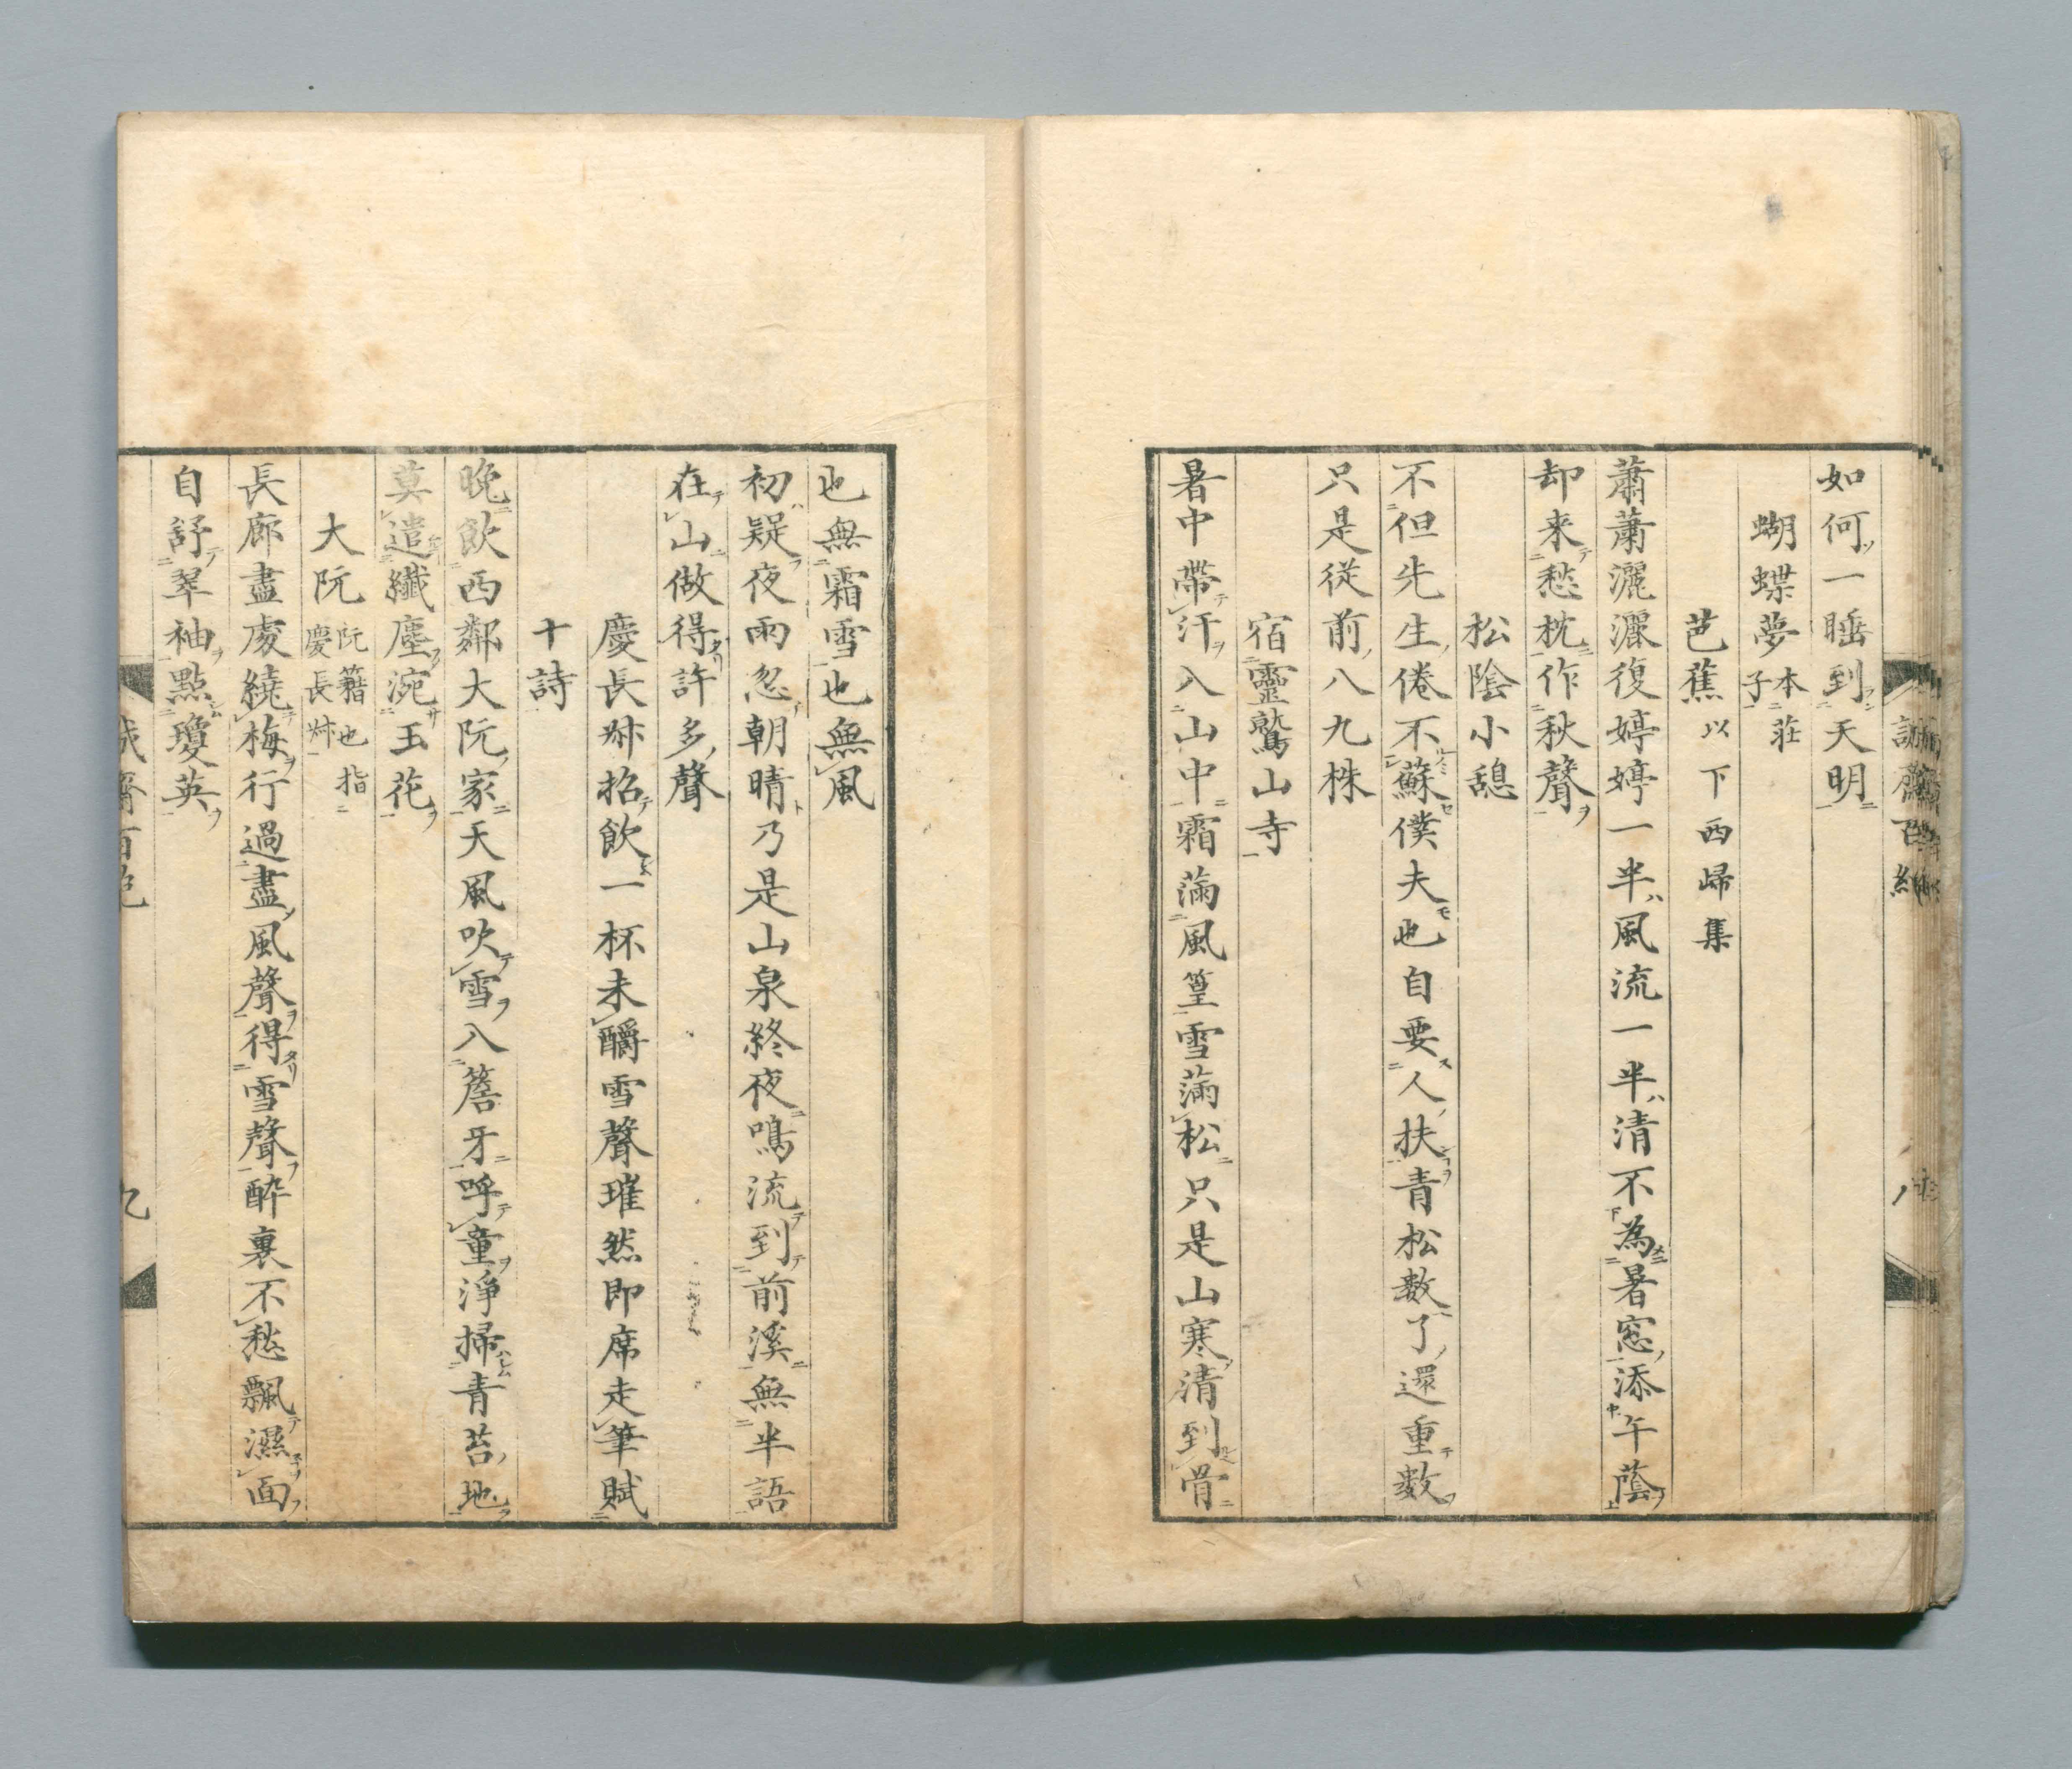 如何一睡到天明
蝴蝶夢本莊子
芭蕉以下西歸集
蕭蕭灑灑復婷婷一半風流一半清不為暑窓添午蔭
却来愁枕作秋聲
松陰小憩
不但先生倦不蘇僕夫也自要人扶青松数了還重数
只是従前八九株
宿靈鷲山寺
暑中帶汗入山中霜滿風篁雪滿松只是山寒清到骨
也無霜雪也無風
初疑夜雨忽朝晴乃是山泉終夜鳴流到前溪無半語
在山做得許多聲
慶長叔招飲一杯未釂雪聲璀然即席走筆賦
十詩
晩飲西鄰大阮家天風吹雪入簷牙呼童淨掃青苔地
莫遣纖塵涴玉花
大阮阮籍也指慶長叔
長廊盡處繞梅行過盡風聲得雪聲醉裏不愁飄濕面
自舒翠袖點瓊英
誠齋百絶
九